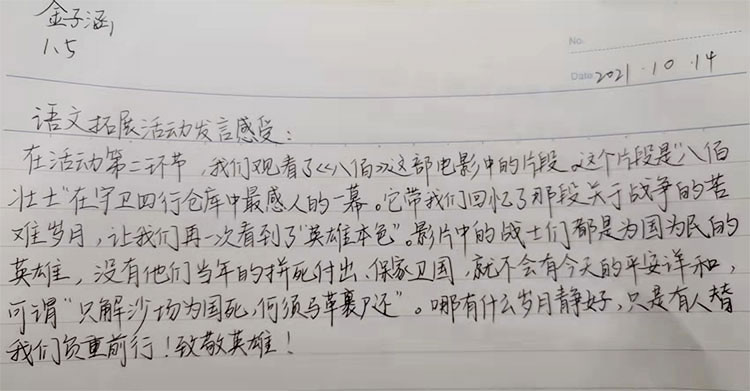 金子涵
1.5
No.
Date 2021.10.14
语文拓展活动发言感受：
在活动第二环节，我们观看了《八佰》这部电影中的片段。这个片段是"八佰
壮士"在守卫四行仓库中最感人的一幕。它带我们回忆了那段关于战争的苦
难岁月，让我们再一次看到了"英雄本色"。影片中的战士们都是为国为民的
英雄，没有他们当年的拼死付出、保家卫国，就不会有今天的平安详和，
可谓"只解沙场为国死，何须马革裹尸还"。哪有什么岁月静好，只是有人替
我们负重前行！致敬英雄！